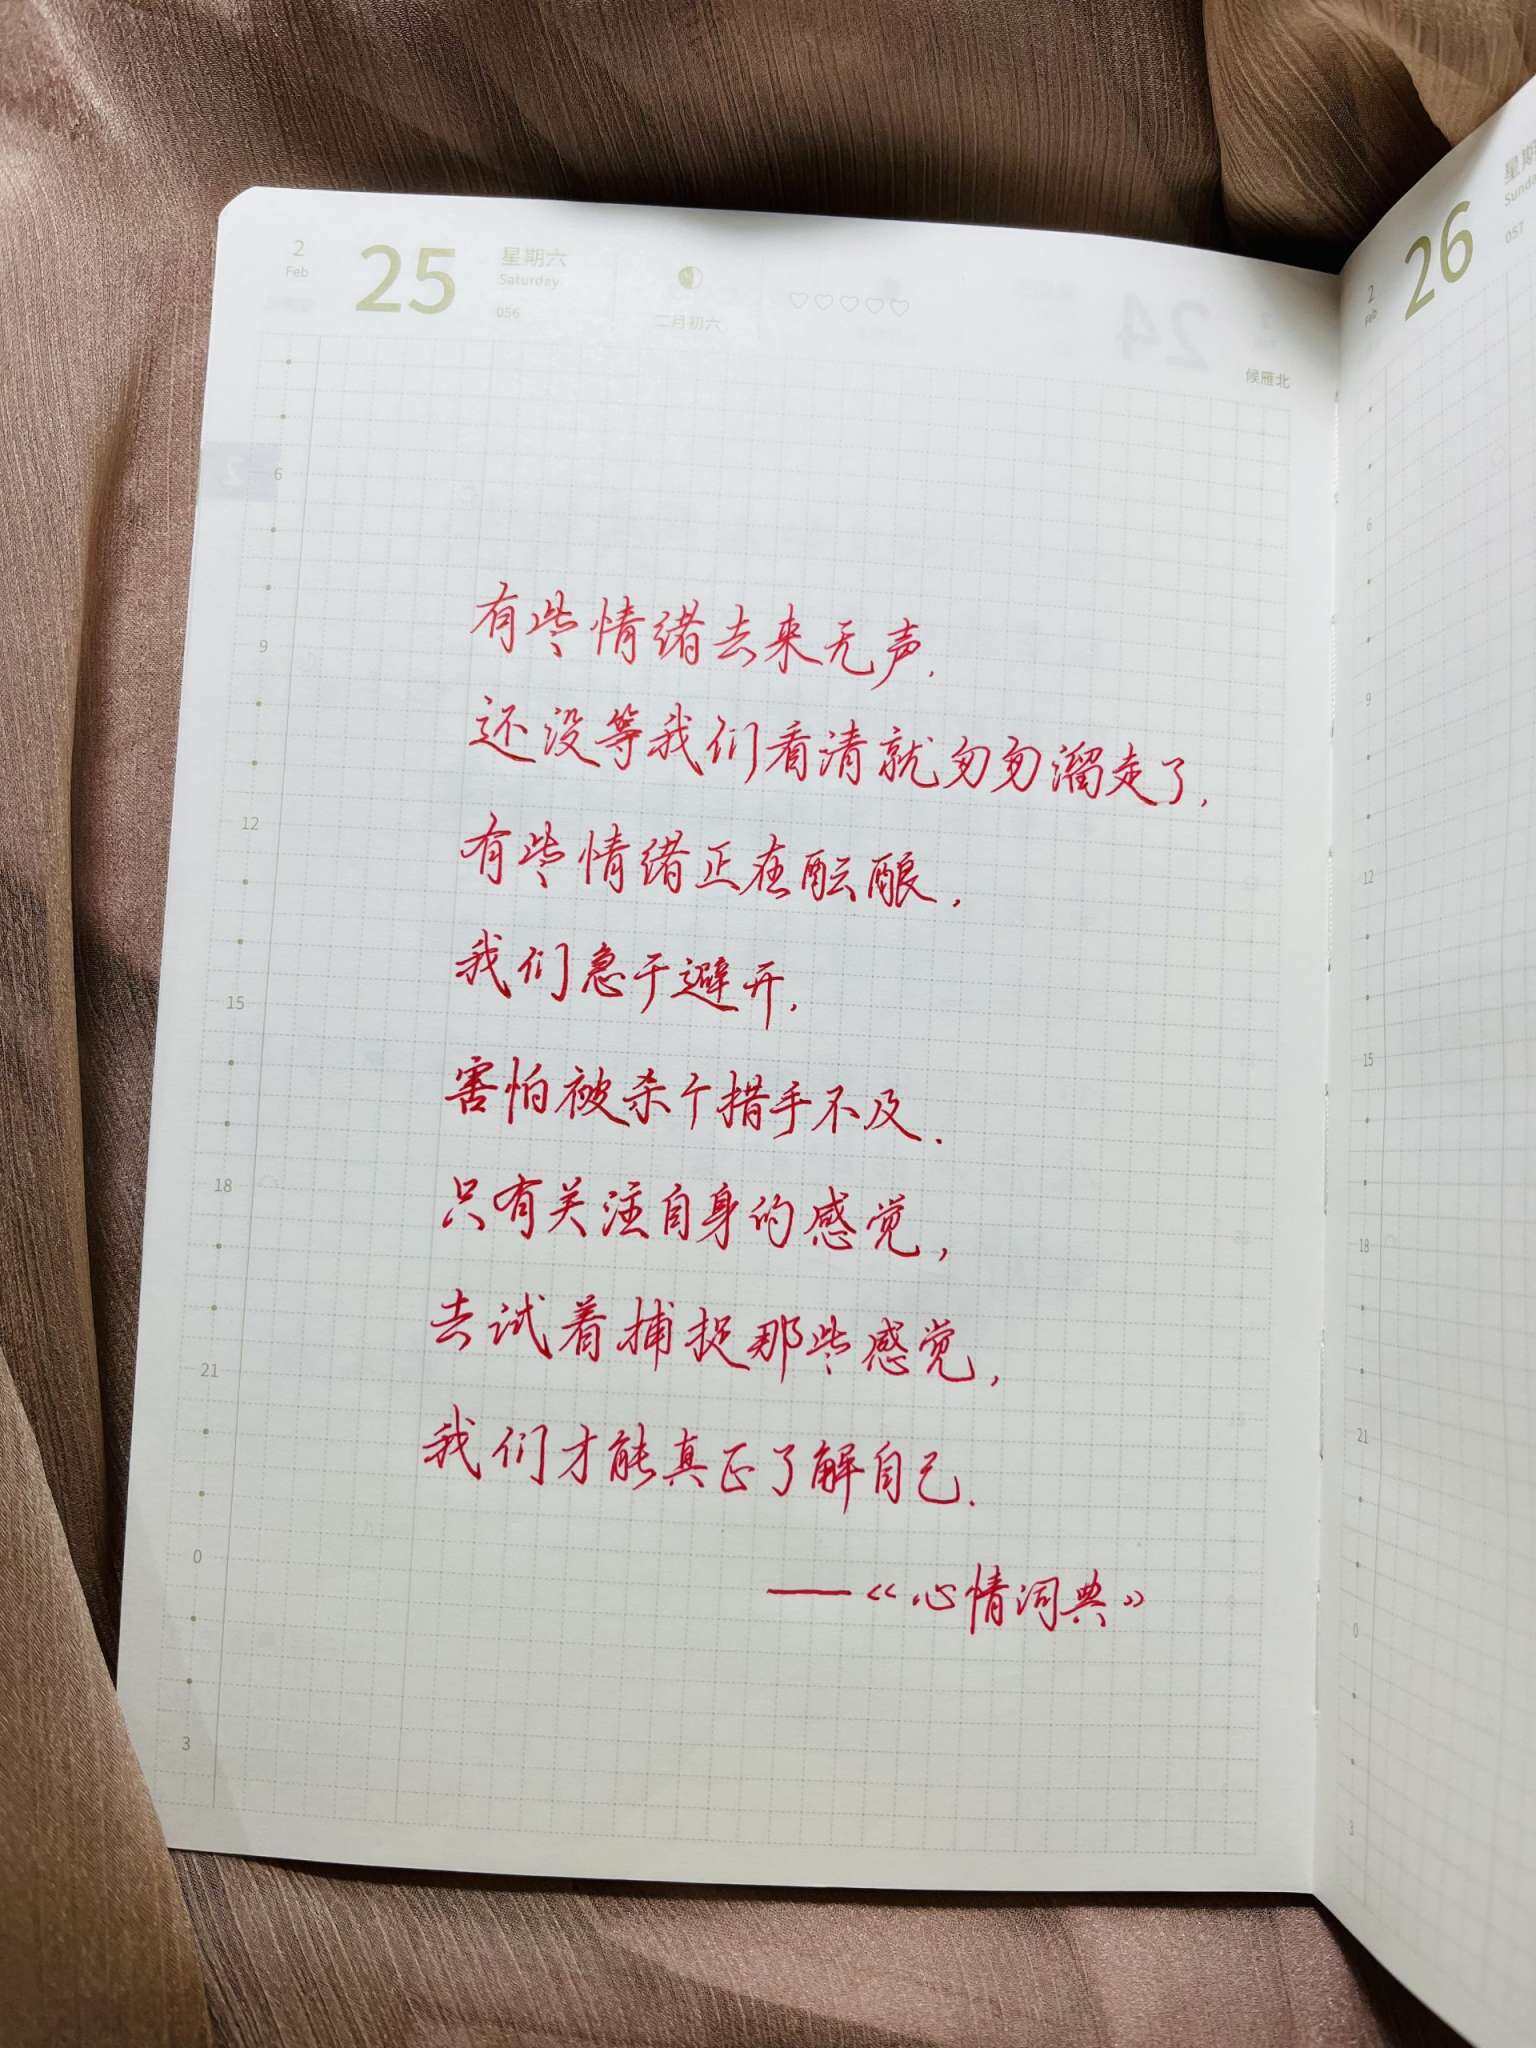 2
Feb
25
星期六
Saturday
056
二月初六
24
候雁北
6
9
12
15
18
21
0
3
有些情绪去来无声.
还没等我们看清就匆匆溜走了,
有些情绪正在酝酿,
我们急于避开,
害怕被杀个措手不及.
只有关注自身的感觉,
去试着捕捉那些感觉,
我们才能真正了解自己.
——《心情词典》
2
Feb
26
星期
Sunda
057
6
9
12
15
18
21
0
3